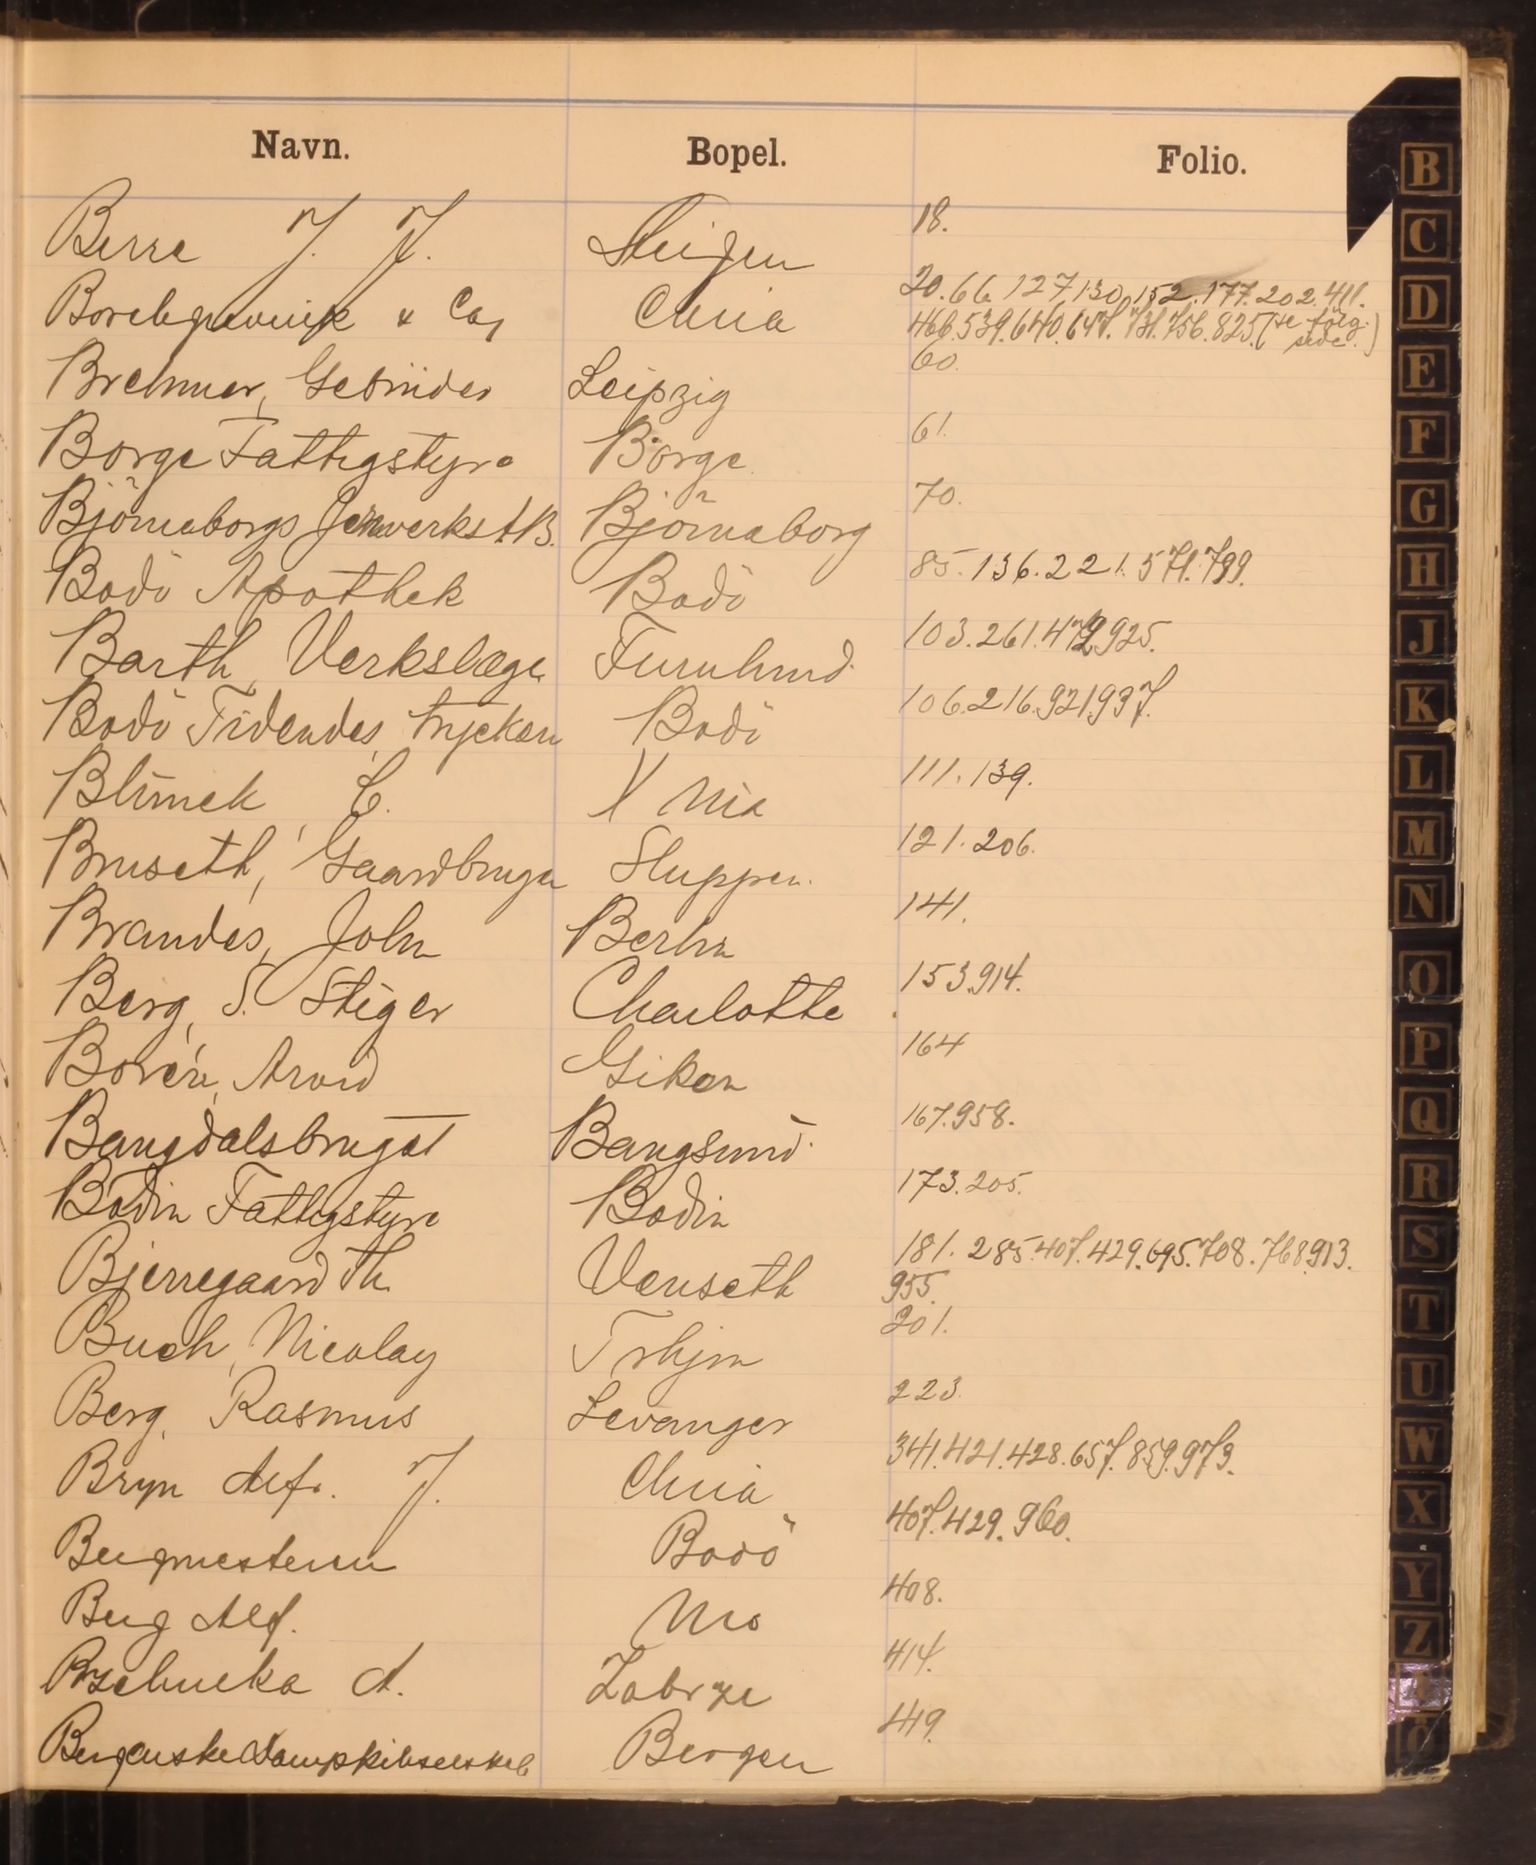 Navn. Bopel. Folio.
Berre J. J. Steigen 18.
Borchgrevink & Co, Chria 20.66.127,130,152.177.202.411.
466.539.640.647.731.756.825.(se følg. side.)
Brehmer, Gebrüder Leipzig 60.
Borge Fattigstyre Borge 61.
Björneborgs Jernverks A.B. Björneborg 70.
Bodö Apothek Bodö 85.136.221.571.799.
Barth, Verkslæge Furulund 103.261.472.925.
Bodö Tidendes, trykkeri Bodö 106.216.921.937.
Blünck, C. Xnia 111.139.
Bruseth, Gaardbruger Sluppen. 121.206.
Brandes, John Berlin 141.
Berg, S. Stiger Charlotte 153.914.
Borén, Arvid Giken 164
Bangdalsbruget Bangsund. 167.958.
Bodin Fattigstyre Bodin 173.205.
Bjerregaard Th. Venseth 181.285.407.429.695.708.768.913.
955.
Buch, Nicolay Trhjm 201.
Berg, Rasmus Levanger 223.
Bryn Alfr. J. Chria 341.421.428.657.859.973.
Bergmesteren Bodö 407.429.960.
Berg Alf. Mo 408.
Brzehucka A. Zabrze 414.
Bergenske Dampskibsselskab Bergen 449.
B
C
D
E
F
G
H
J
K
L
M
N
O
P
Q
R
S
T
U
W
X
Y
Z
Ö